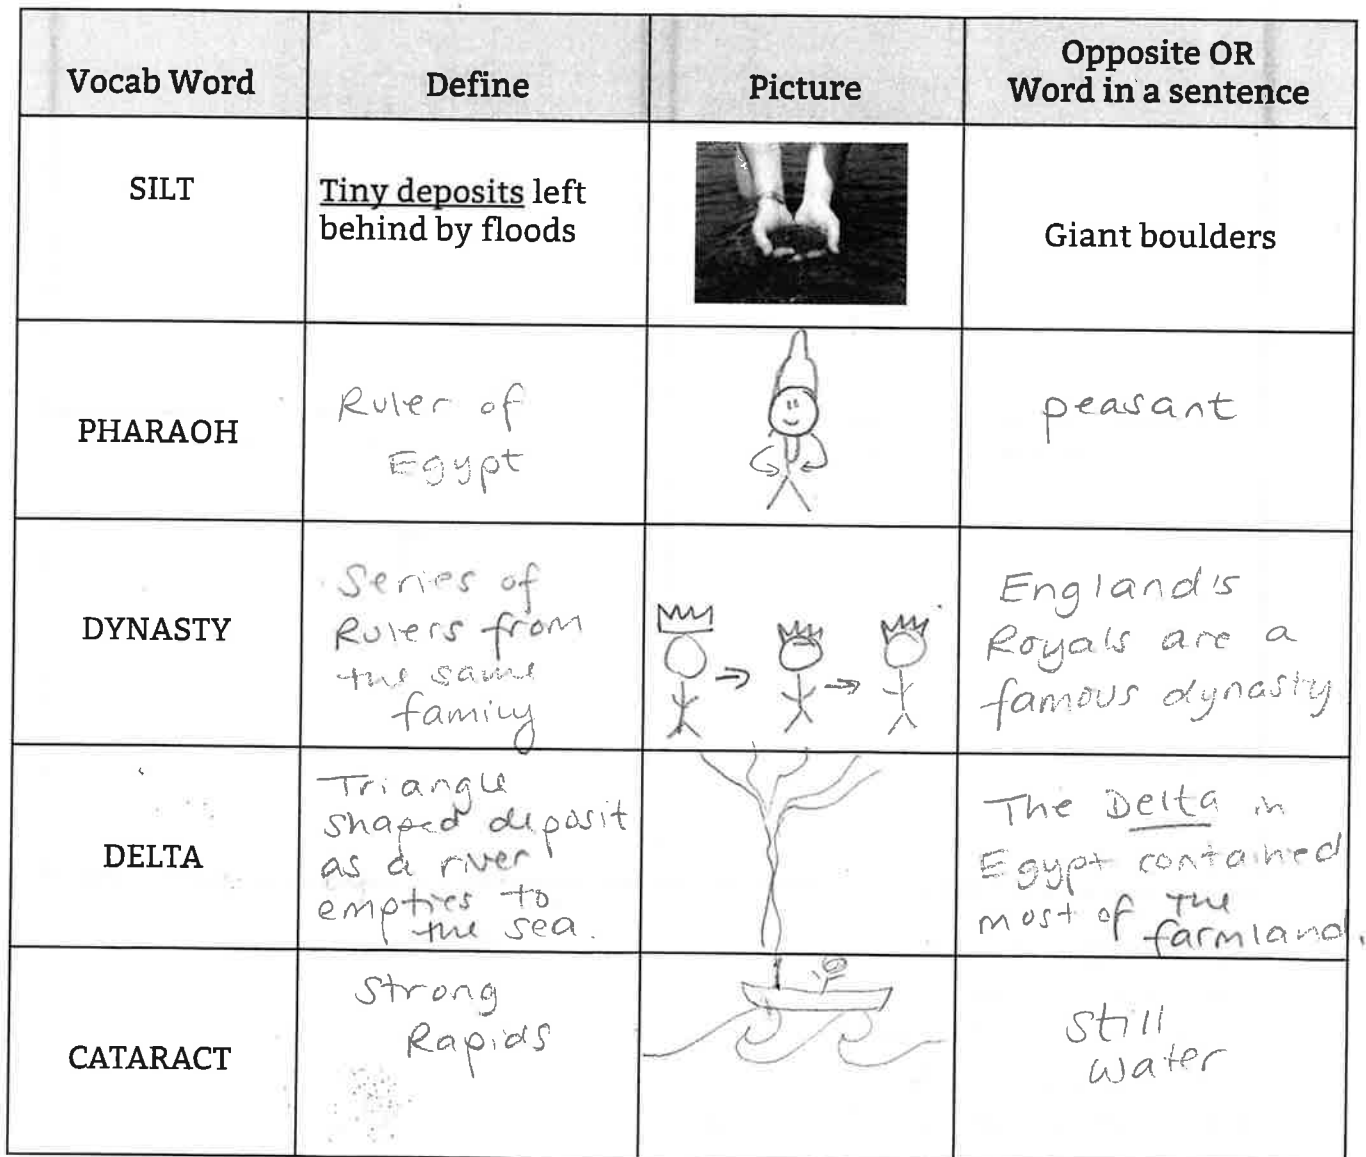 Vocab Word
Define
Picture
Opposite OR
Word in a sentence
SILT
Tiny deposits left
behind by floods
Giant boulders
PHARAOH
Ruler of
Egypt
peasant
DYNASTY
Series of
Rulers from
the same
family
England's
Royals are a
famous dynasty
DELTA
Triangle
shaped deposit
as a river
empties to
the sea.
The Delta in
Egypt contained
most of the
farmland.
CATARACT
Strong
Rapids
Still
Water